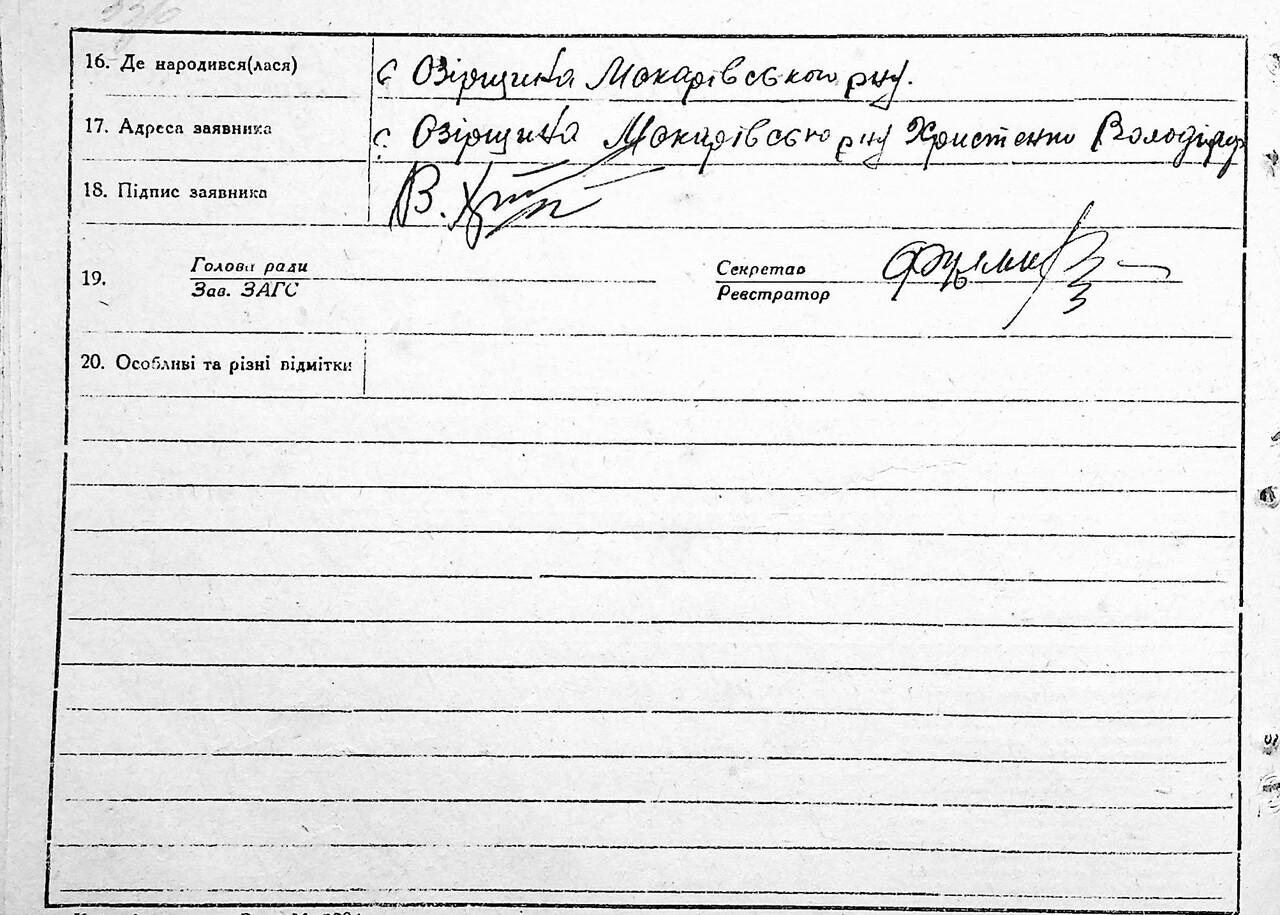 16. Де народився(лася) с Озірщина Макарівського р-ну.
17. Адреса заявника с. Озірщина Макарівського р-ну Христенко Володімір
18. Підпис заявника В.
19. Голова ради Секретар
Зав. ЗАГС Реєстратор
20. Особливі та різні відмітки